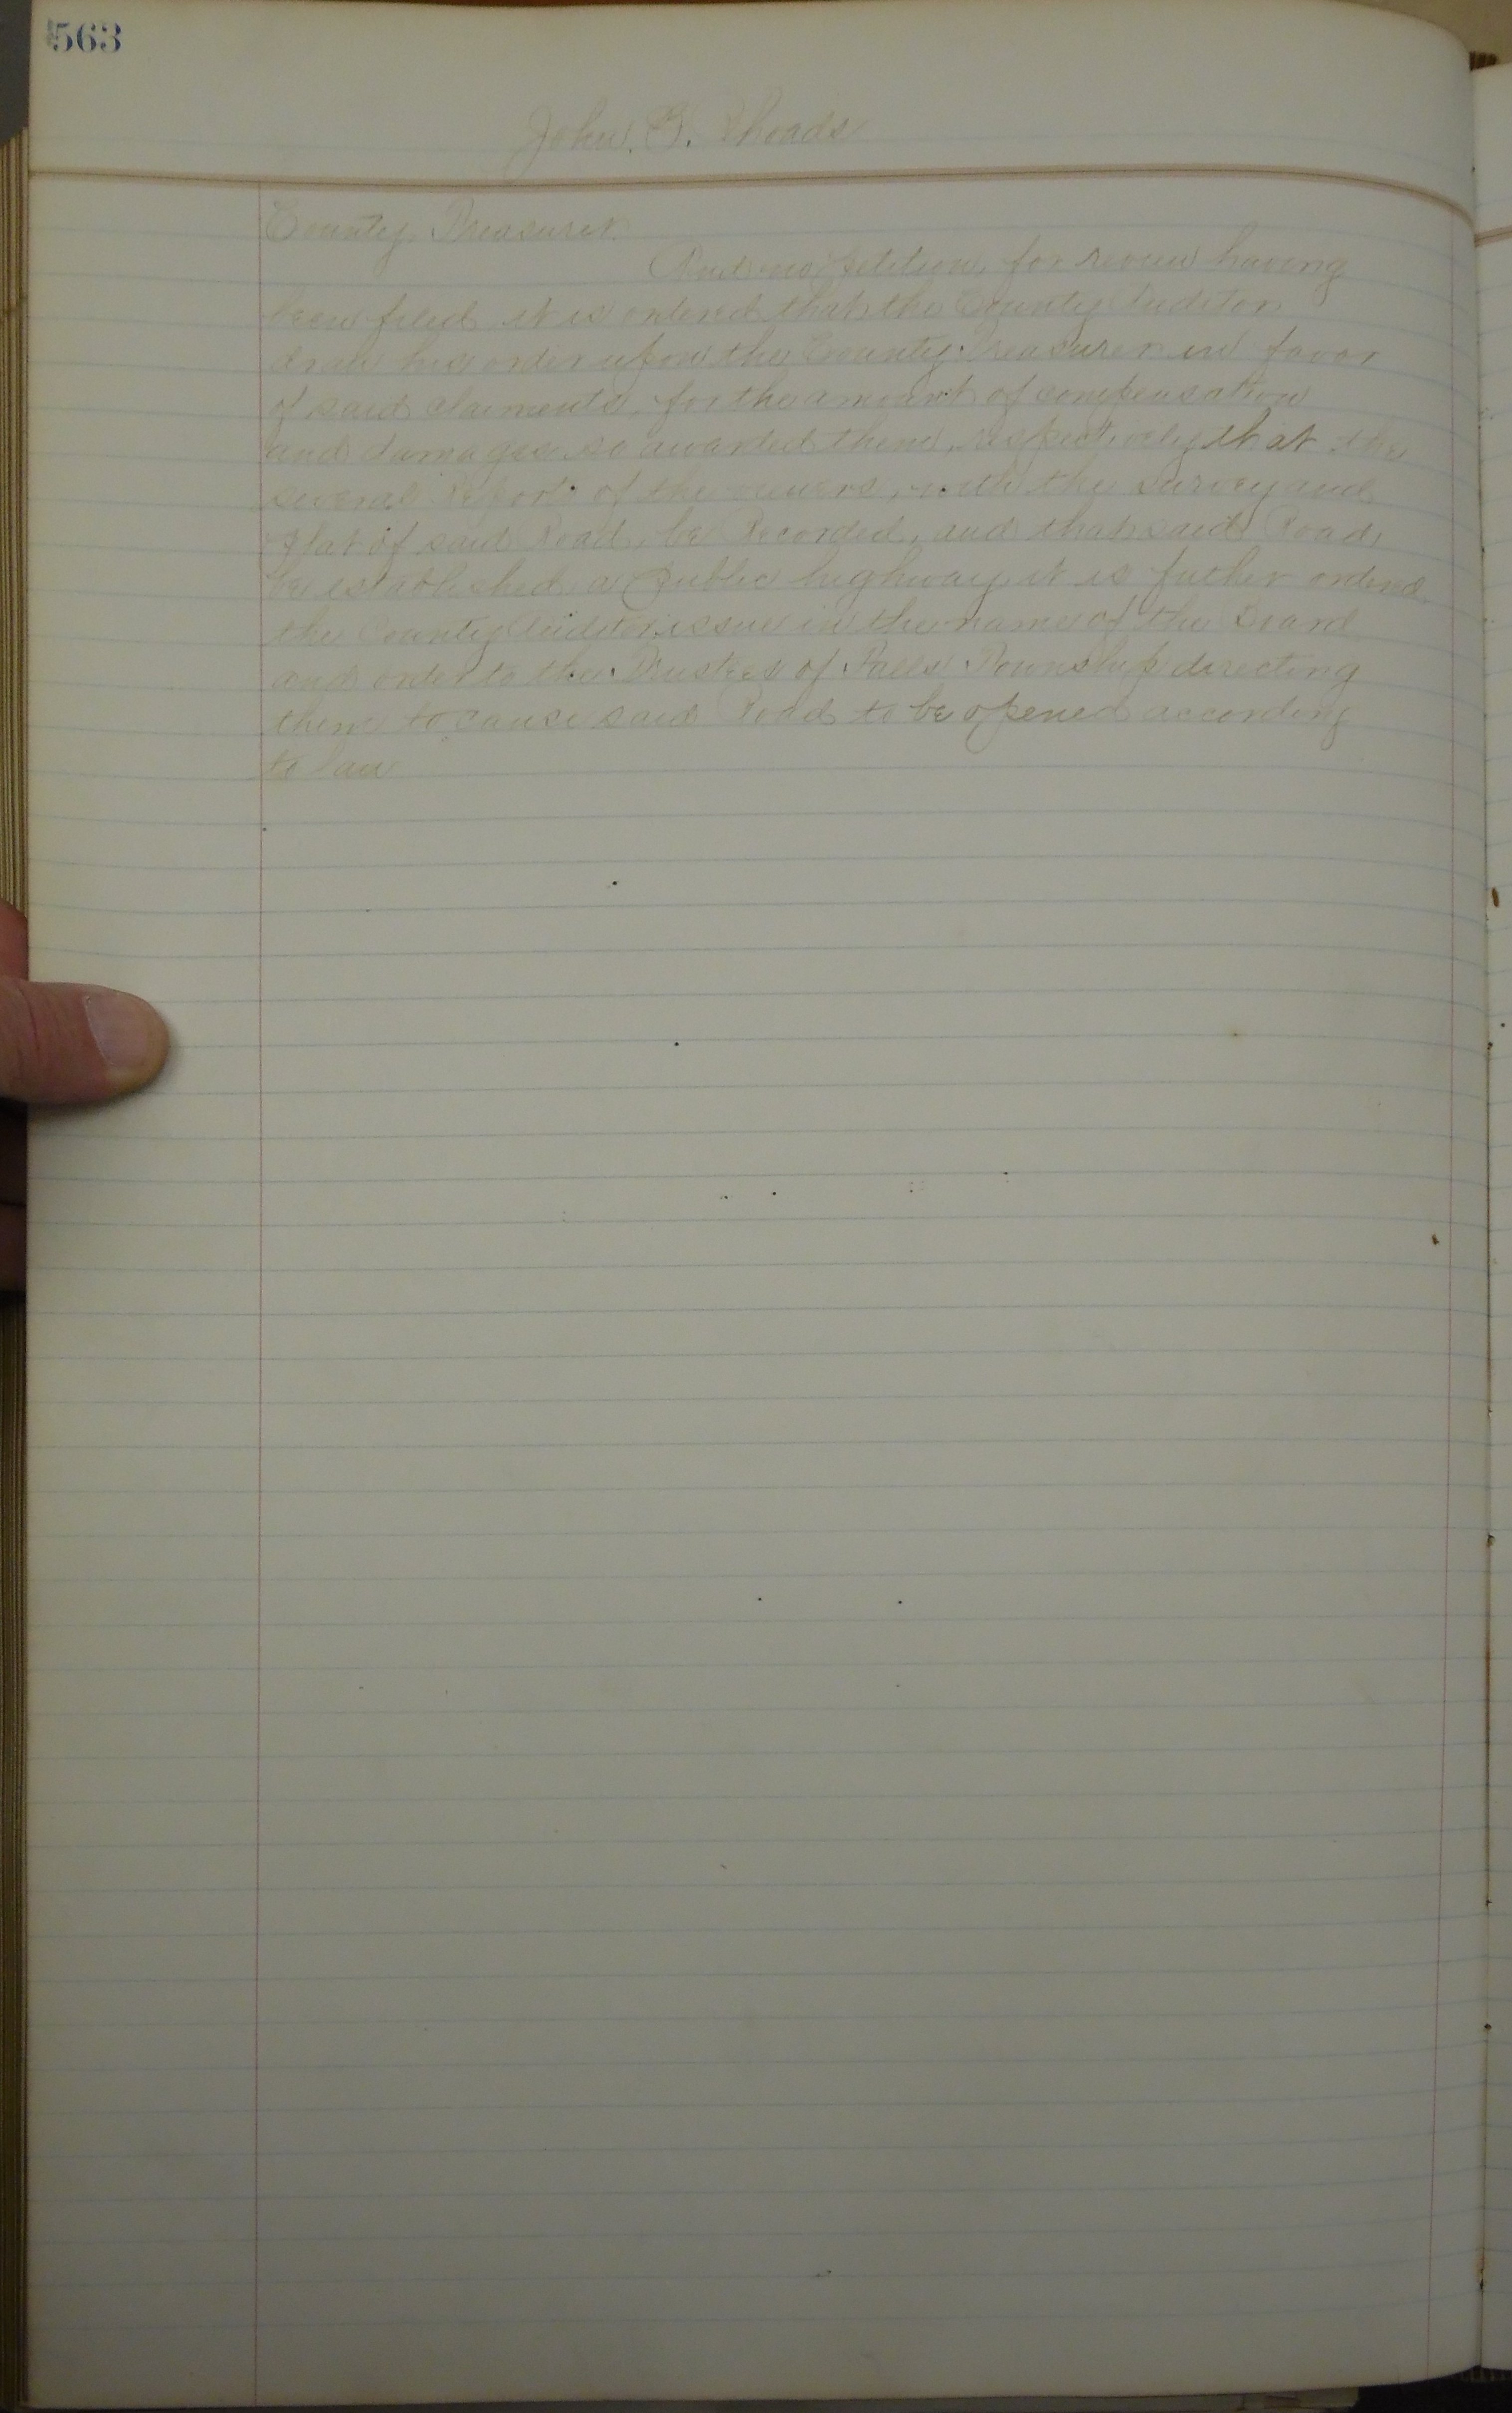 563
John. G. Rhoads
County Treasurer.
And no petition, for review having
been filed it is ordered that the County Auditor
draw his order upon the County Treasurer in favor
of said claiments, for the amount of compensation
and damages so awarded them, respectively that the
several reports of the viewers, with the survey and
plat of said Road, be Recorded, and that said Road,
be established a public highway it is futher ordered
the County Auditor issue in the name of the Board
and order to the Trustees of Falls Township directing
them to cause said Road to be opened according
to law